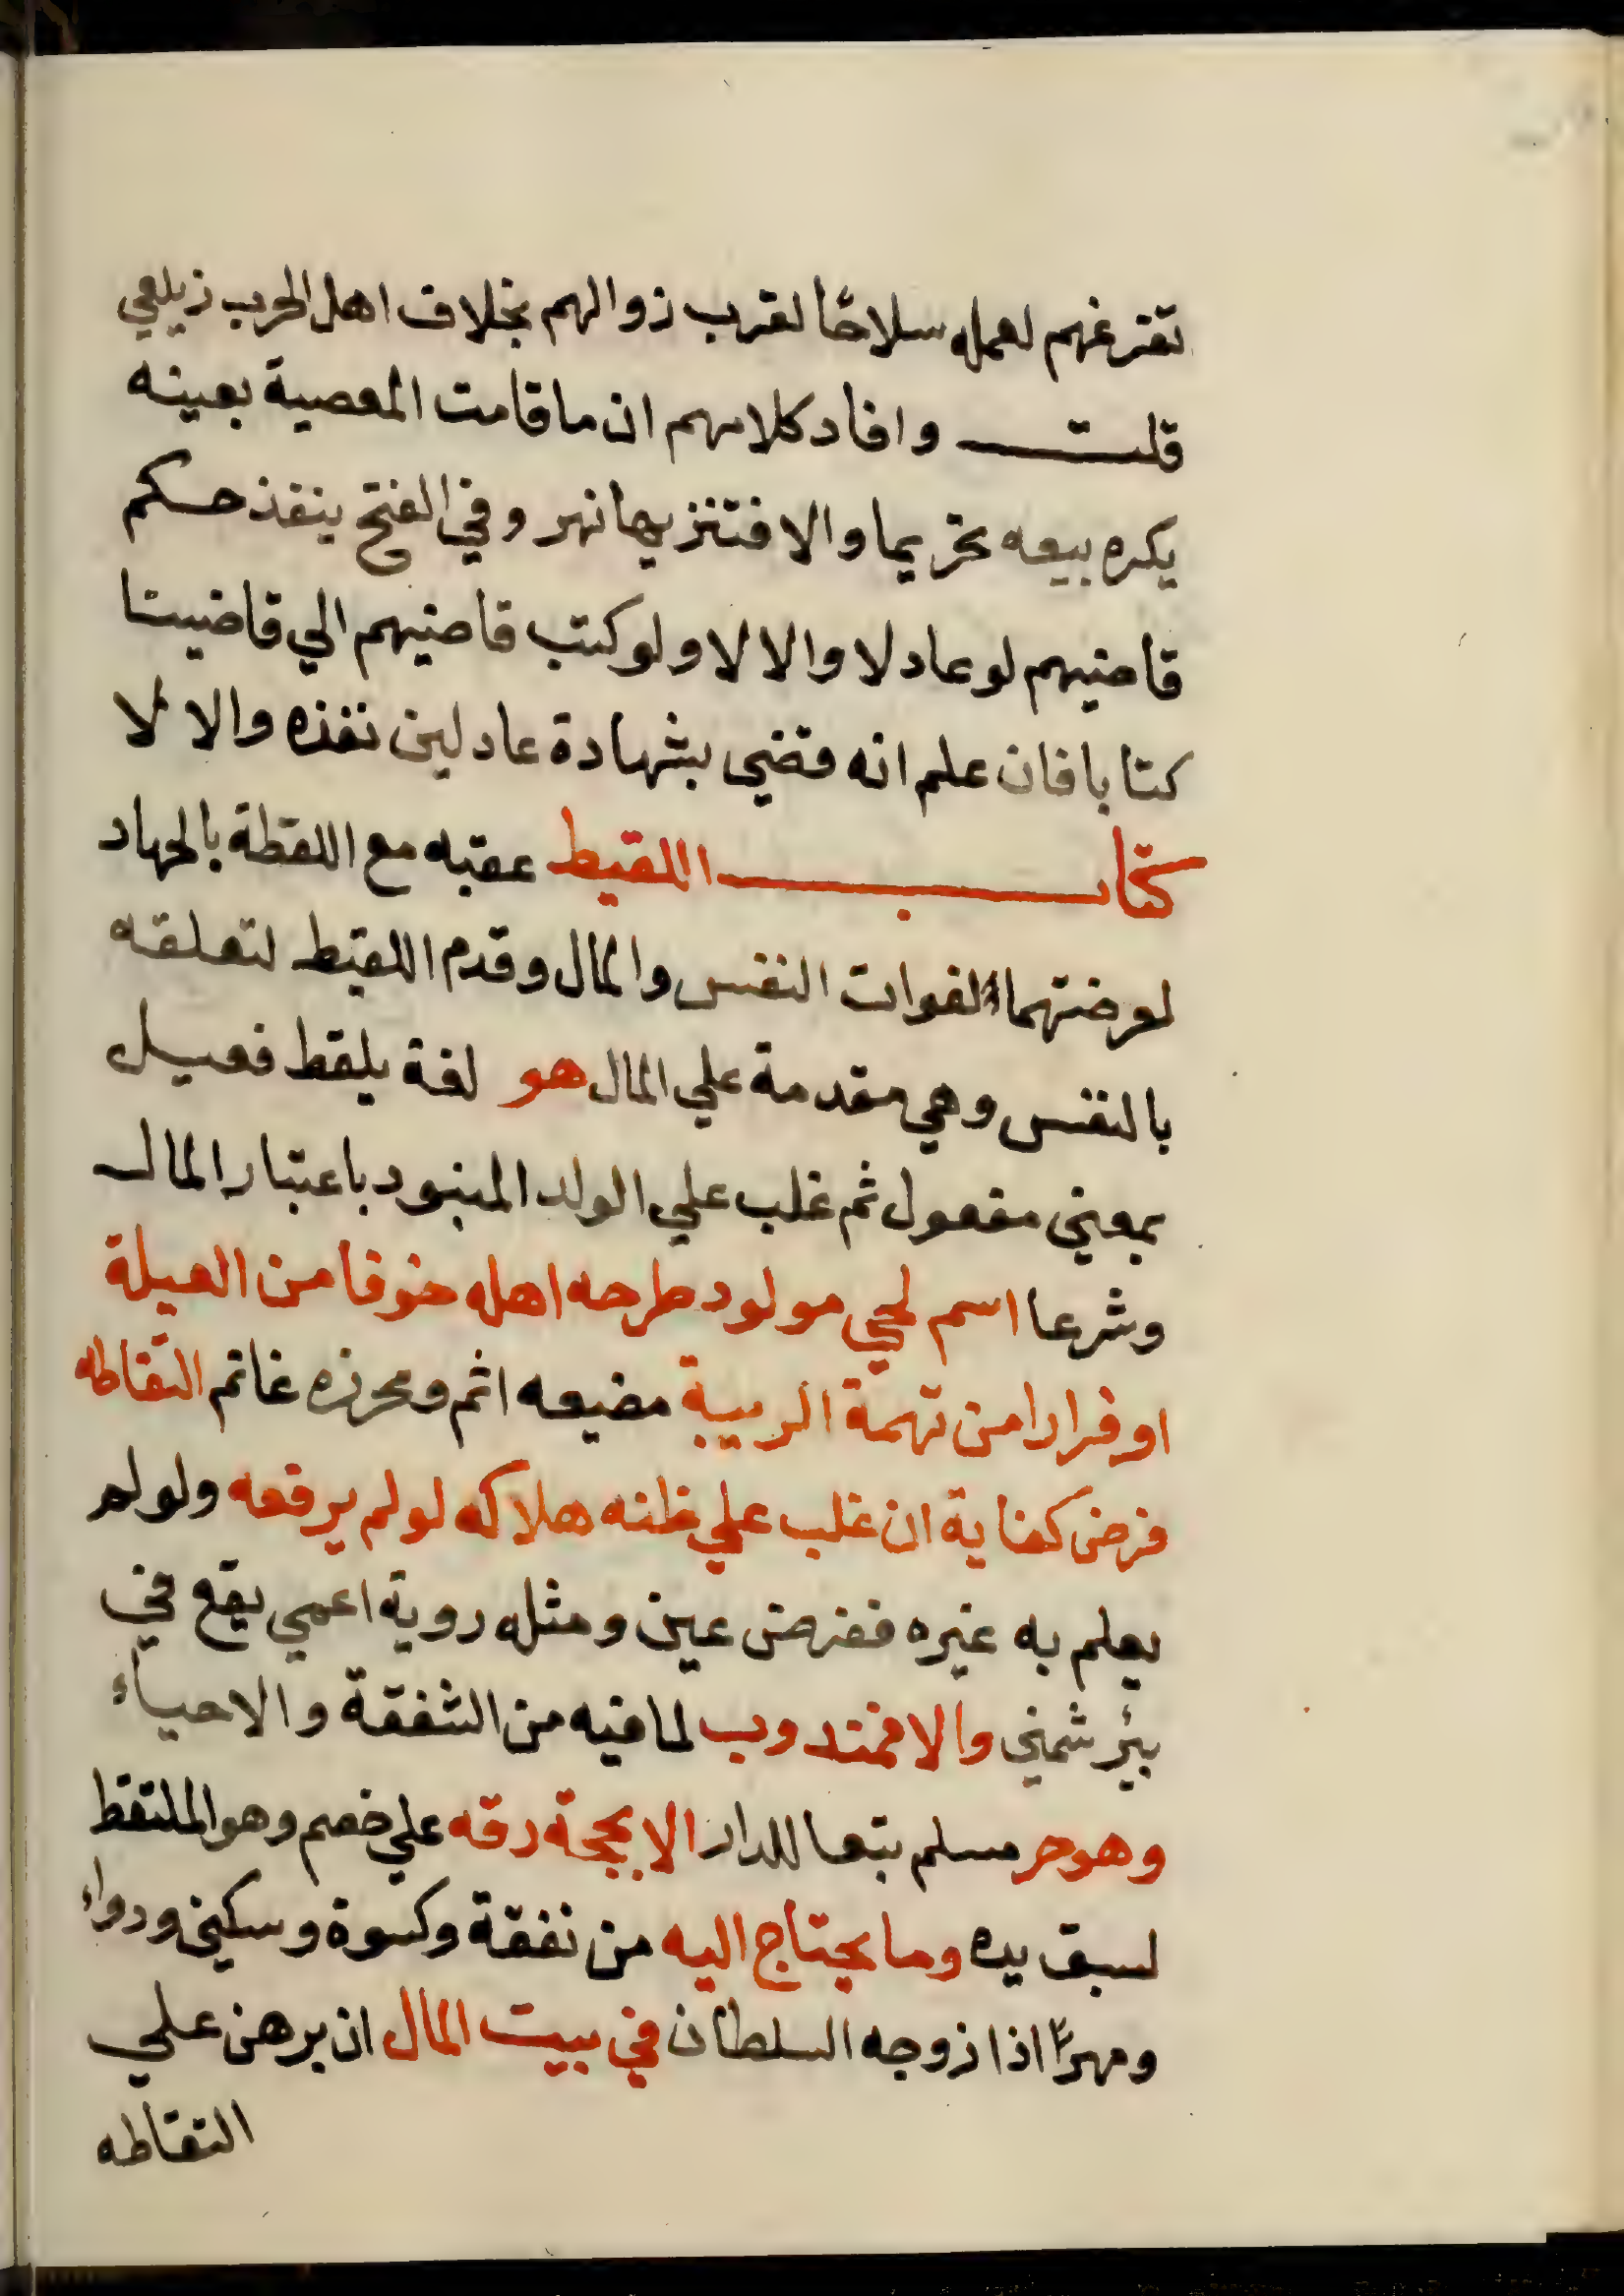 تفرغهم لعمله سلاحًا لقرب زوالهم بخلاف اهل الحرب زيلعي
قلت وافاد كلامهم ان ما قامت المعصية بعينه
يكره بيعه تحريما والا فتنزيها نهر وفي الفتح ينفذ حكم
قاضيهم لو عادلا والا لا ولو كتب قاضيهم الي قاضينا
كتابا فان علم انه قضي بشهادة عادلين نفذه والا لا
كتاب اللقيط عقبه مع اللقطة بالجهاد
لعرضتهما لفوات النفس والمال وقدم اللقيط لتعلقه
بالنفس وهي مقدمة علي المال هو لغة يلقط فعيل
بمعني مفعول ثم غلب علي الولد المنبود باعتبار المال
وشرعا اسم لحي مولود طرحه اهله خوفا من العيلة
او فرارا من تهمة الريبة مضيعه اثم ومحرزه غانم التقاطه
فرض كفاية ان غلب علي ظنه هلاكه لو لم يرفعه ولو لم
يعلم به غيره ففرض عين ومثله روية اعمي يقع في
بئر شمني والا فمندوب لما فيه من الشفقة والاحياء
وهو حر مسلم تبعا للدار الا بحجة رقه علي خصم وهو الملتقط
لسبق يده وما يحتاج اليه من نفقة وكسوة وسكني ودواء
ومهرًا اذا زوجه السلطان في بيت المال ان برهن علي
التقاطه